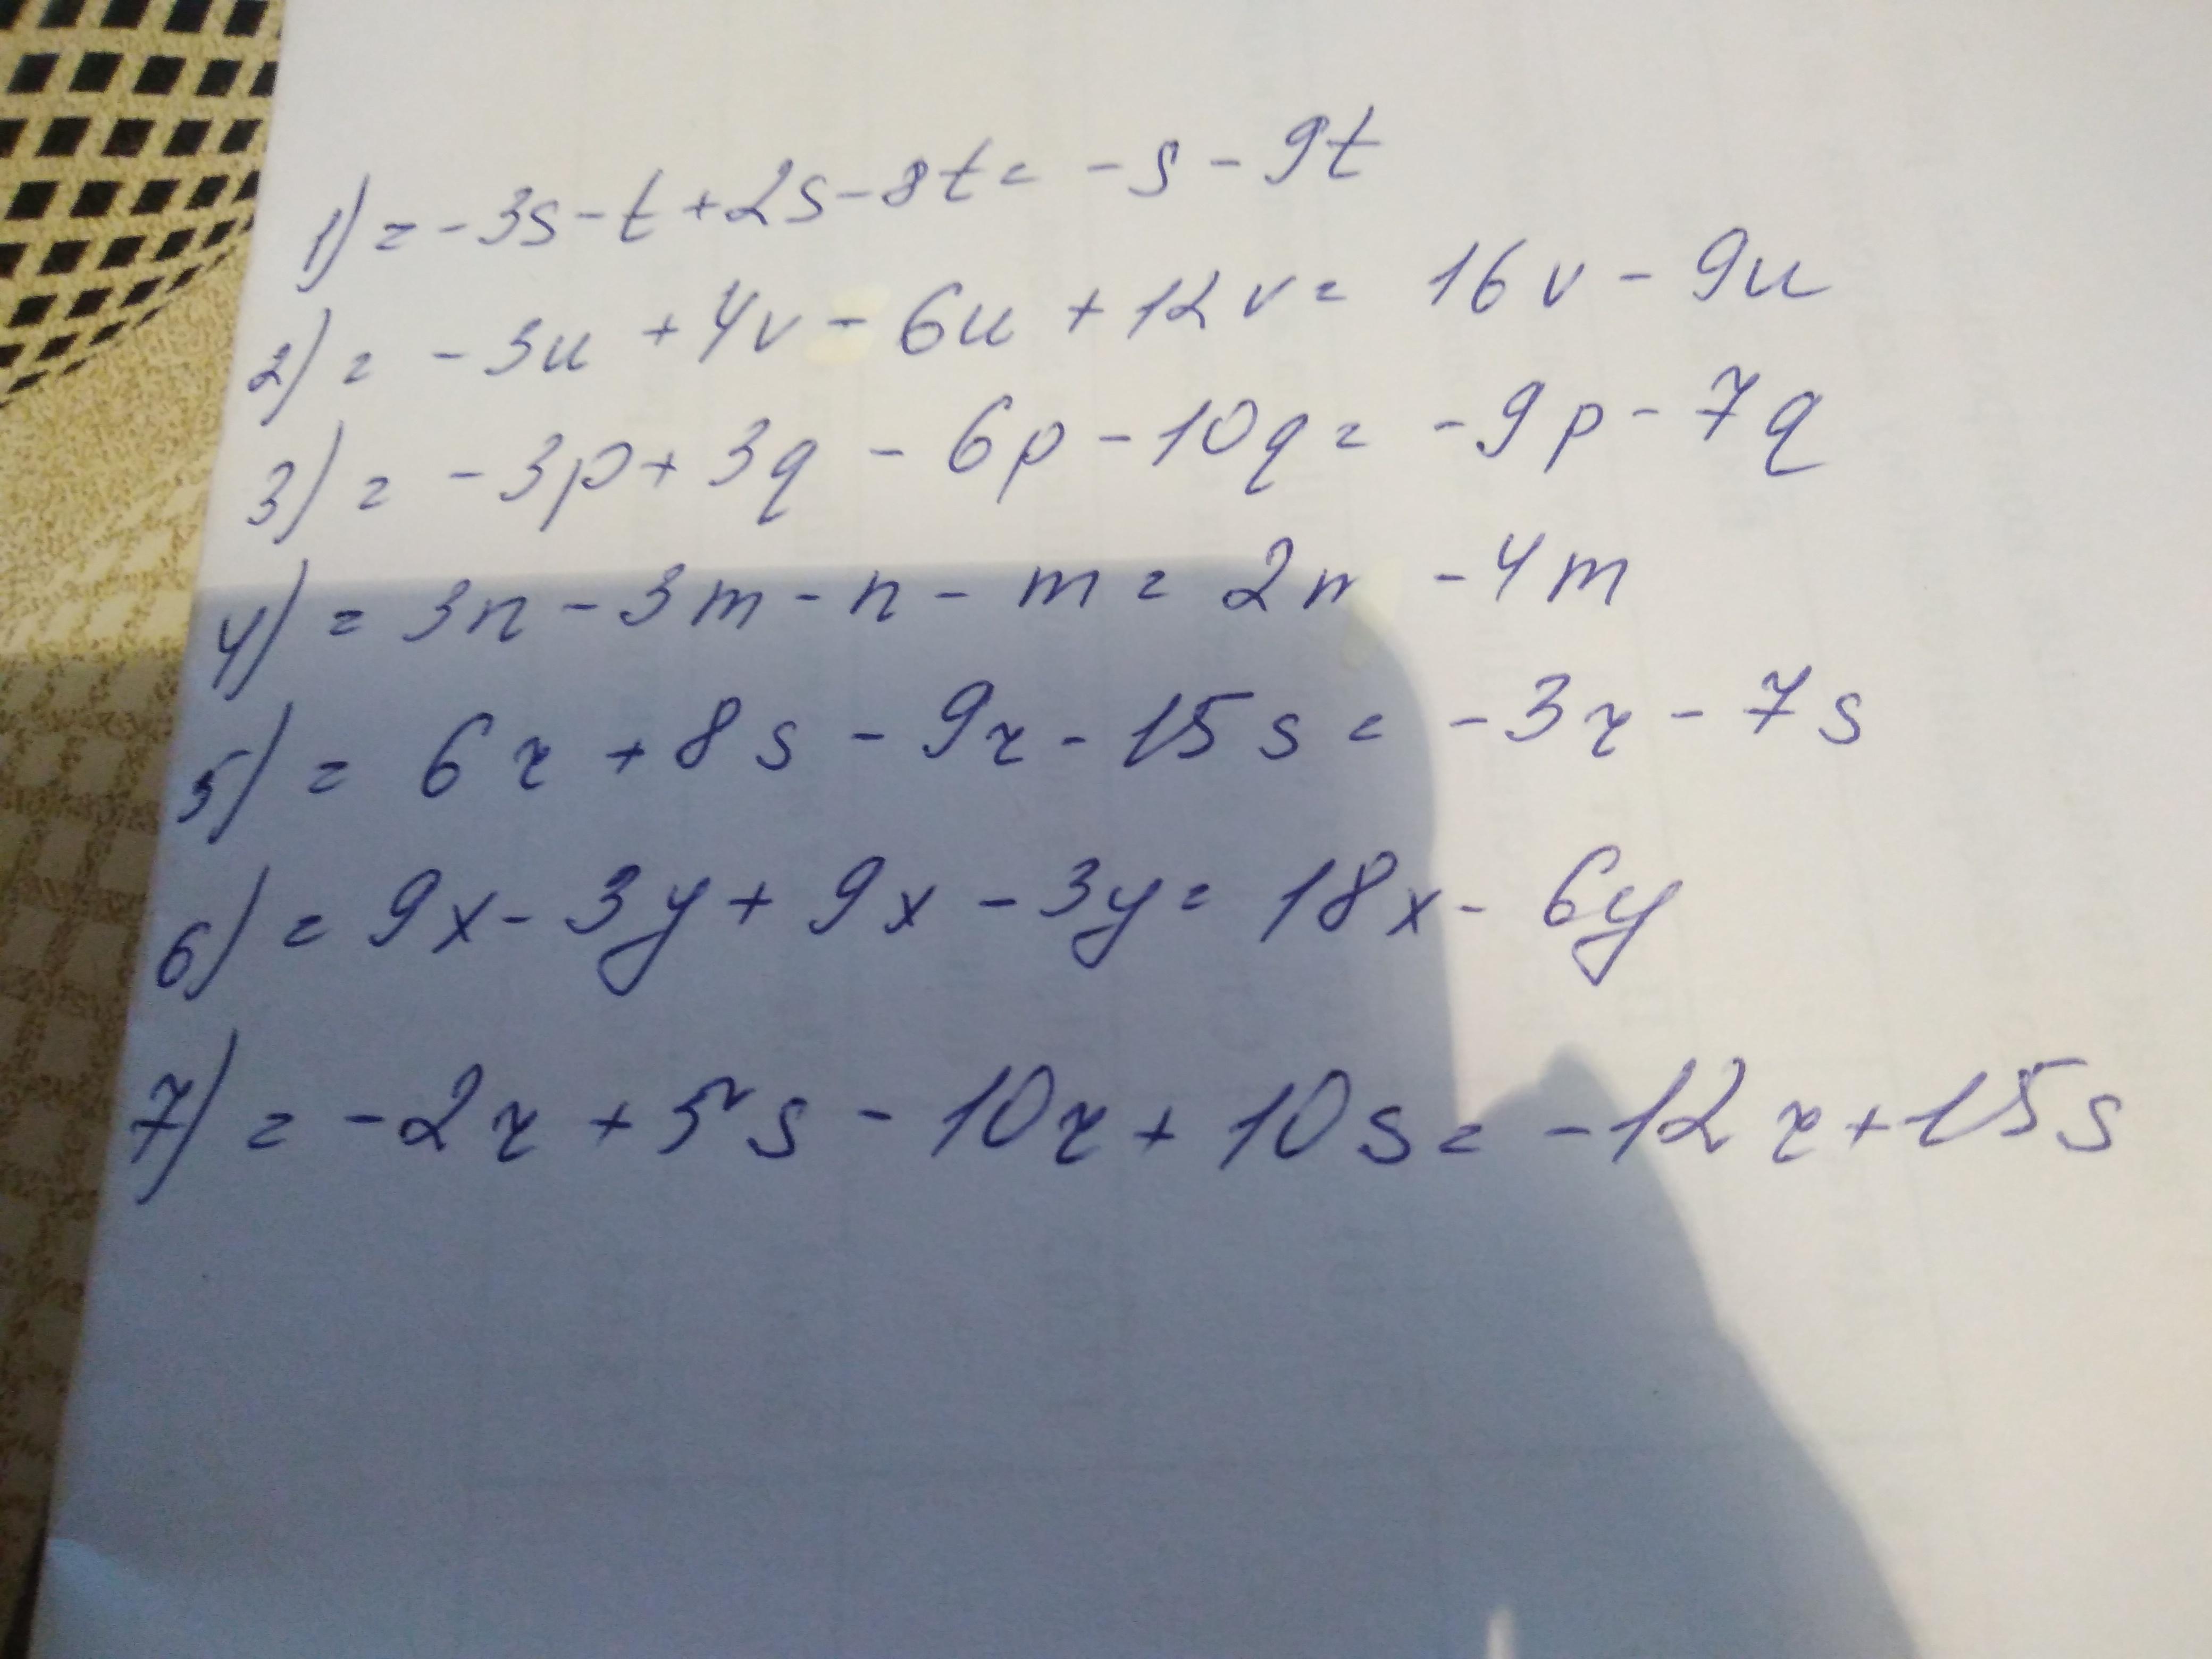 1) = -3s - t + 2s - 8t = -s - 9t
2) = -3u + 4v - 6u + 12v = 16v - 9u
3) = -3p + 3q - 6p - 10q = -9p - 7q
4) = 3n - 3m - n - m = 2n - 4m
5) = 6r + 8s - 9r - 15s = -3r - 7s
6) = 9x - 3y + 9x - 3y = 18x - 6y
7) = -2r + 5s - 10r + 10s = -12r + 15s